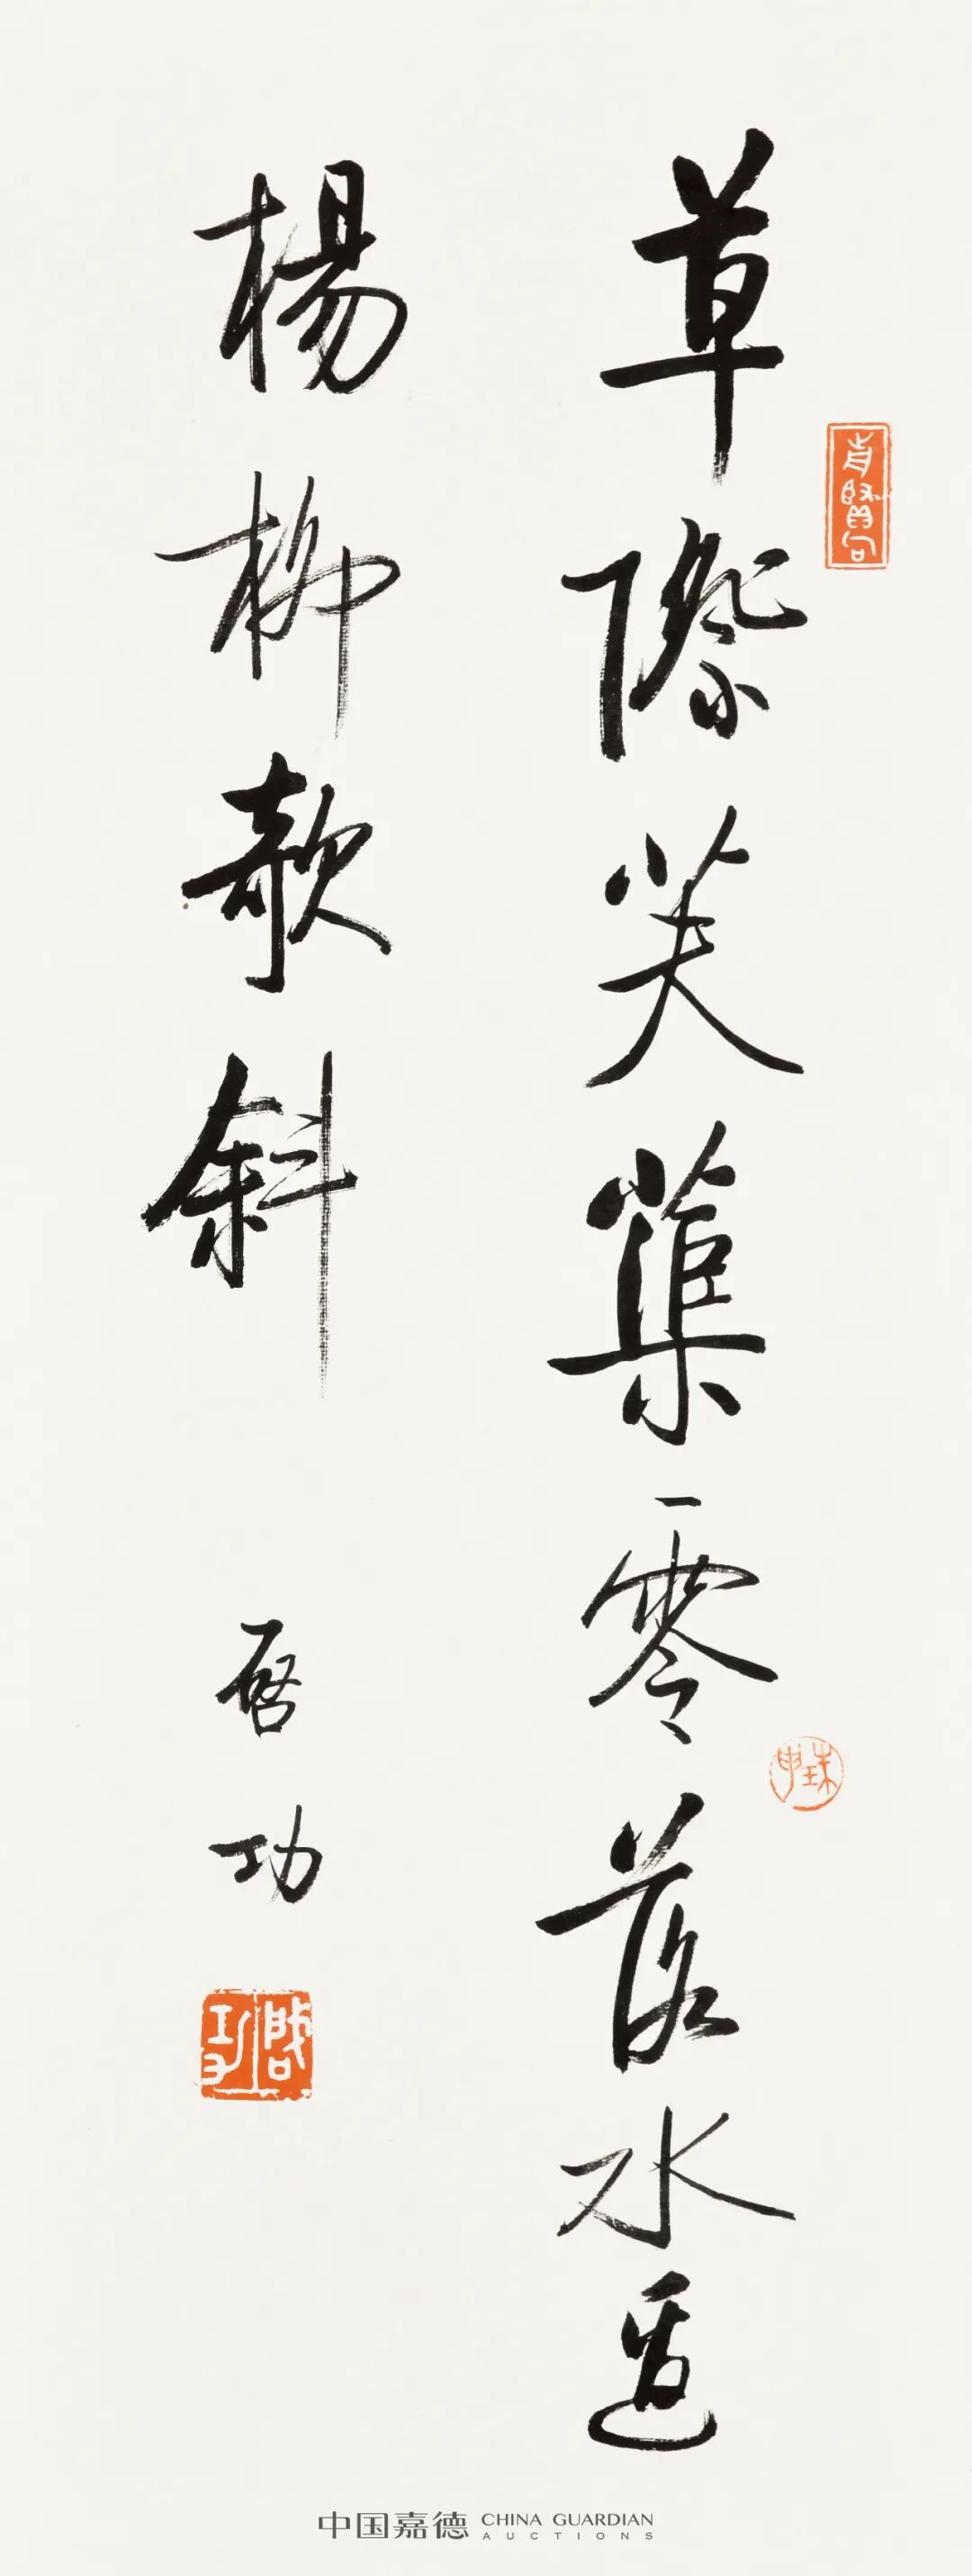 草際芙蕖零落水邊
楊柳欹斜
啓功
珠申
啓功
中国嘉德 CHINA GUARDIAN
AUCTIONS